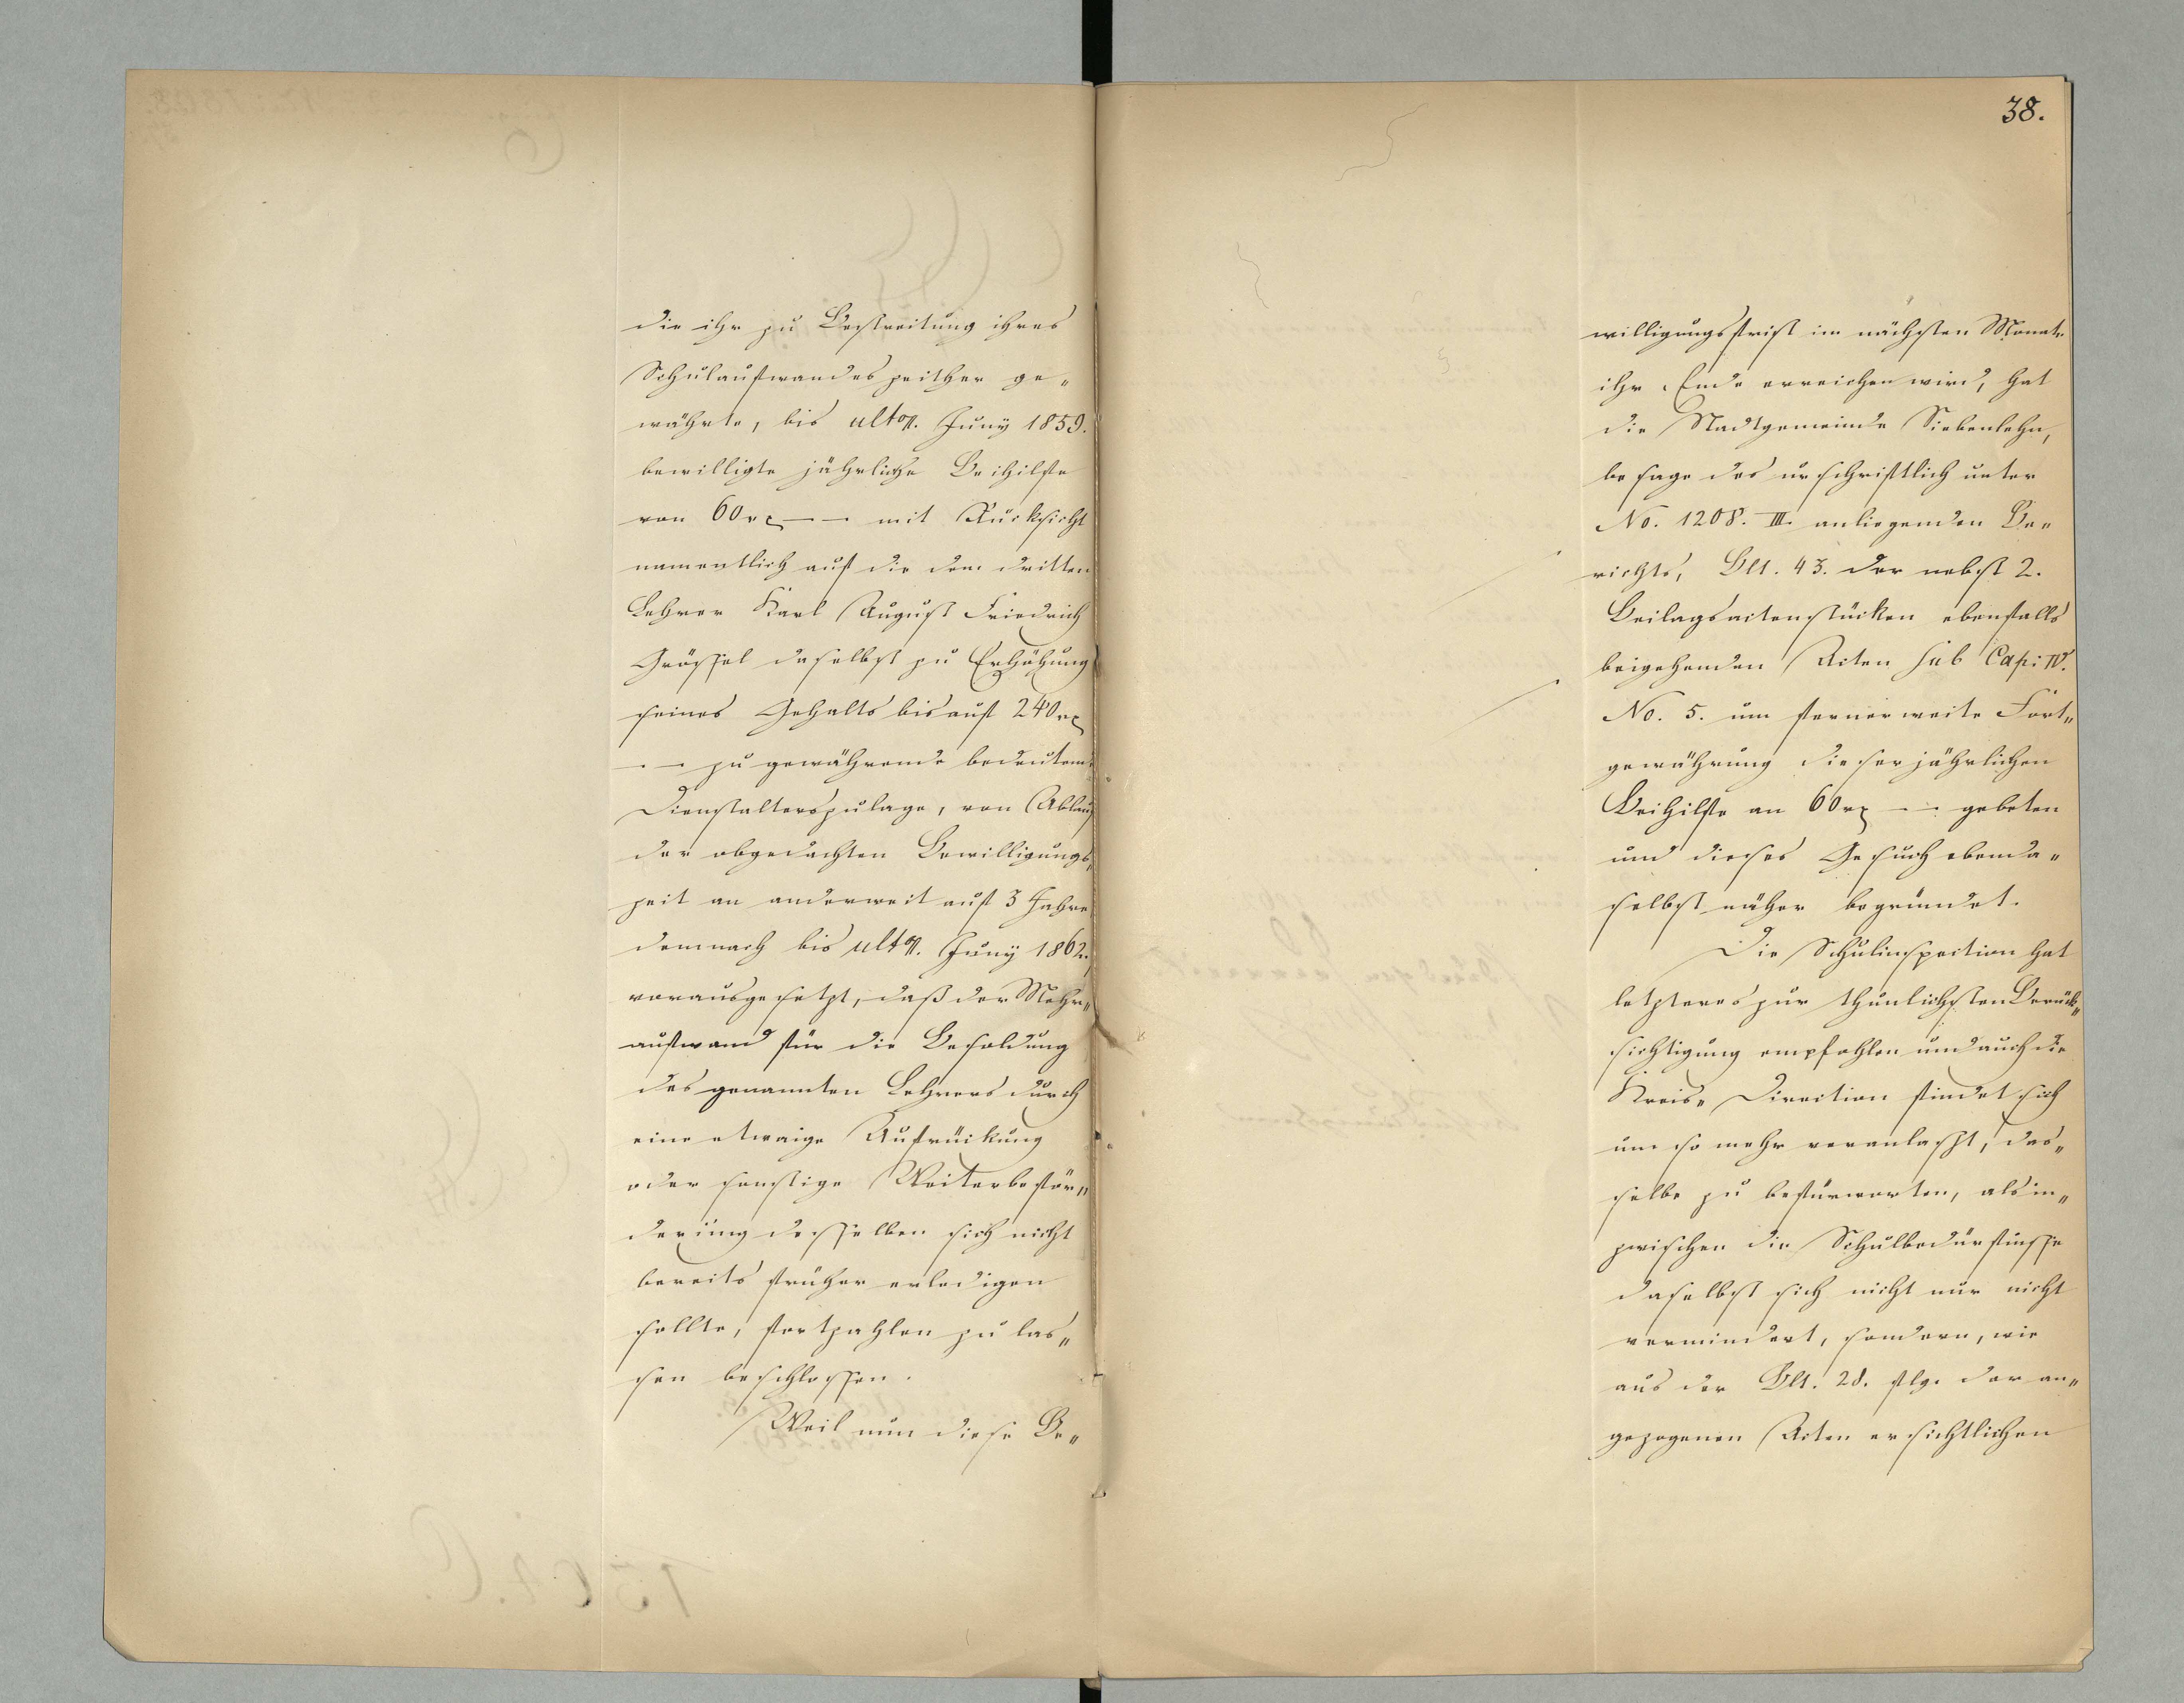 die ihr zu Bestreitung ihres
Schulaufwandes zeither ge„
währte, bis ulto. Juny 1859.
bewilligte jährliche Beihilfe
von 60 rℓ — - mit Rücksicht
namentlich auf die dem dritten
Lehrer Karl August Friedrich
Grössel daselbst zu Erhöhung
seines Gehalts bis auf 240 rℓ
- — zu gewährende bedeutende
Dienstalterszulage, von Ablauf
der obgedachten Bewilligungs„
zeit an anderweit auf 3 Jahre,
demnach bis ulto. Juny 1862.,
vorausgesetzt, daß der Mehr„
aufwand für die Besoldung
des genannten Lehrers durch
eine etwaige Aufrückung
oder sonstige Weiterbeför„
derung desselben sich nicht
bereits früher erledigen
sollte, fortzahlen zu las„
sen beschlossen.
Weil nun diese Be„
38.
willigungsfrist im nächsten Monate
ihr Ende erreichen wird, hat
die Stadtgemeinde Siebenlehn,
besage des urschriftlich unter
No. 1208. III. anliegenden Be„
richts, Blt. 43. der nebst 2.
Beilagsactenstücken ebenfalls
beigehenden Acten sub Cap: IV.
No. 5. um fernerweite Fort„
gewährung dieser jährlichen
Beihilfe an 60 rℓ — - gebeten
und dieses Gesuch ebenda„
selbst näher begründet.
Die Schulinspection hat
letzteres zur thunlichsten Berück„
sichtigung empfohlen und auch die
Kreis„Direction findet sich
um so mehr veranlaßt, das„
selbe zu befürworten, als in„
zwischen die Schulbedürfnisse
daselbst sich nicht nur nicht
vermindert, sondern, wie
aus der Blt. 28. flg. der an„
gezogenen Acten ersichtlichen